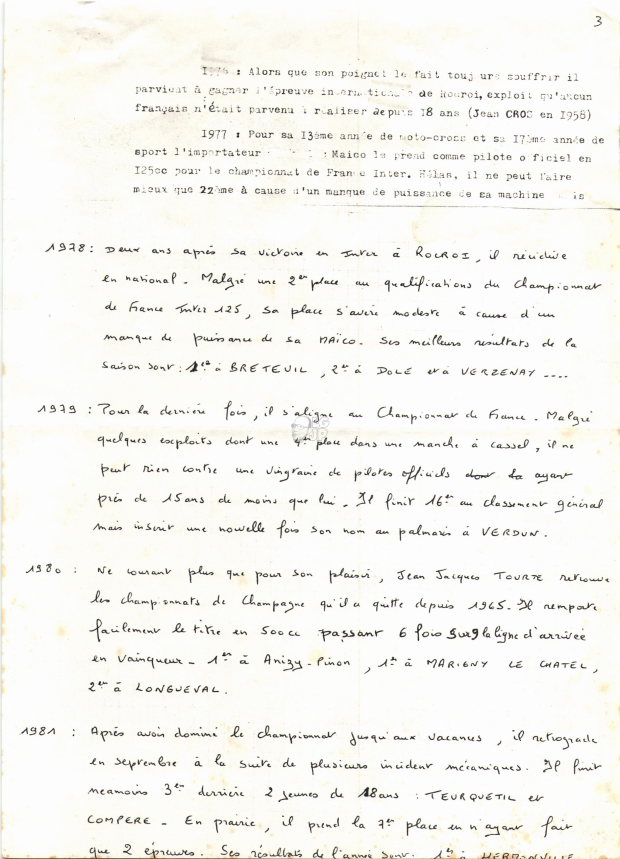 3
1976 : Alors que son poignet le fait touj urs souffrir il
parvient à gagner l'épreuve internationale de Rocroi, exploit qu'aucun
français n'était parvenu à realiser depuis 18 ans (Jean CROS en 1958)
1977 : Pour sa 13ème année de moto-cross et sa 17ème année de
sport l'importateur Maico le prend comme pilote officiel en
125cc pour le championnat de France Inter. Hélas, il ne peut faire
mieux que 22ème à cause d'un manque de puissance de sa machine
1978 : Deux ans après sa victoire en Inter à ROCROI, il récidive
en national. Malgré une 2em place au qualifications du Championnat
de France Inter 125, sa place s'avère modeste à cause d'un
manque de puissance de sa MAÏCO. Ses meilleurs résultats de la
saison sont : 1er à BRETEUIL, 2em à DOLE et à VERZENAY ....
1979 : Pour la dernière fois, il s'aligne au Championnat de France. Malgré
quelques exploits dont une 4em place dans une manche à cassel, il ne
peut rien contre une vingtaine de pilotes officiels dont la ayant
près de 15 ans de moins que lui. Il finit 16em au classement général
mais inscrit une nouvelle fois son nom au palmarès à VERDUN.
1980 : Ne courant plus que pour son plaisir, Jean Jacques TOURTE retrouve
les championnats de Champagne qu'il a quitté depuis 1965. Il remporte
facilement le titre en 500cc passant 6 fois sur 9 la ligne d'arrivée
en vainqueur - 1er à Anizy-Pinon, 1er à MARIGNY LE CHATEL,
2em à LONGUEVAL.
1981 : Après avoir dominé le championnat jusqu'aux vacances, il retrograde
en septembre à la suite de plusieurs incident mécaniques. Il finit
neamoins 3em derrière 2 jeunes de 18 ans : TEURQUETIL et
COMPERE - En prairie, il prend la 7em place en n'ayant fait
que 2 épreuves. Ses résultats de l'année sont : 1er à HERMONVILLE